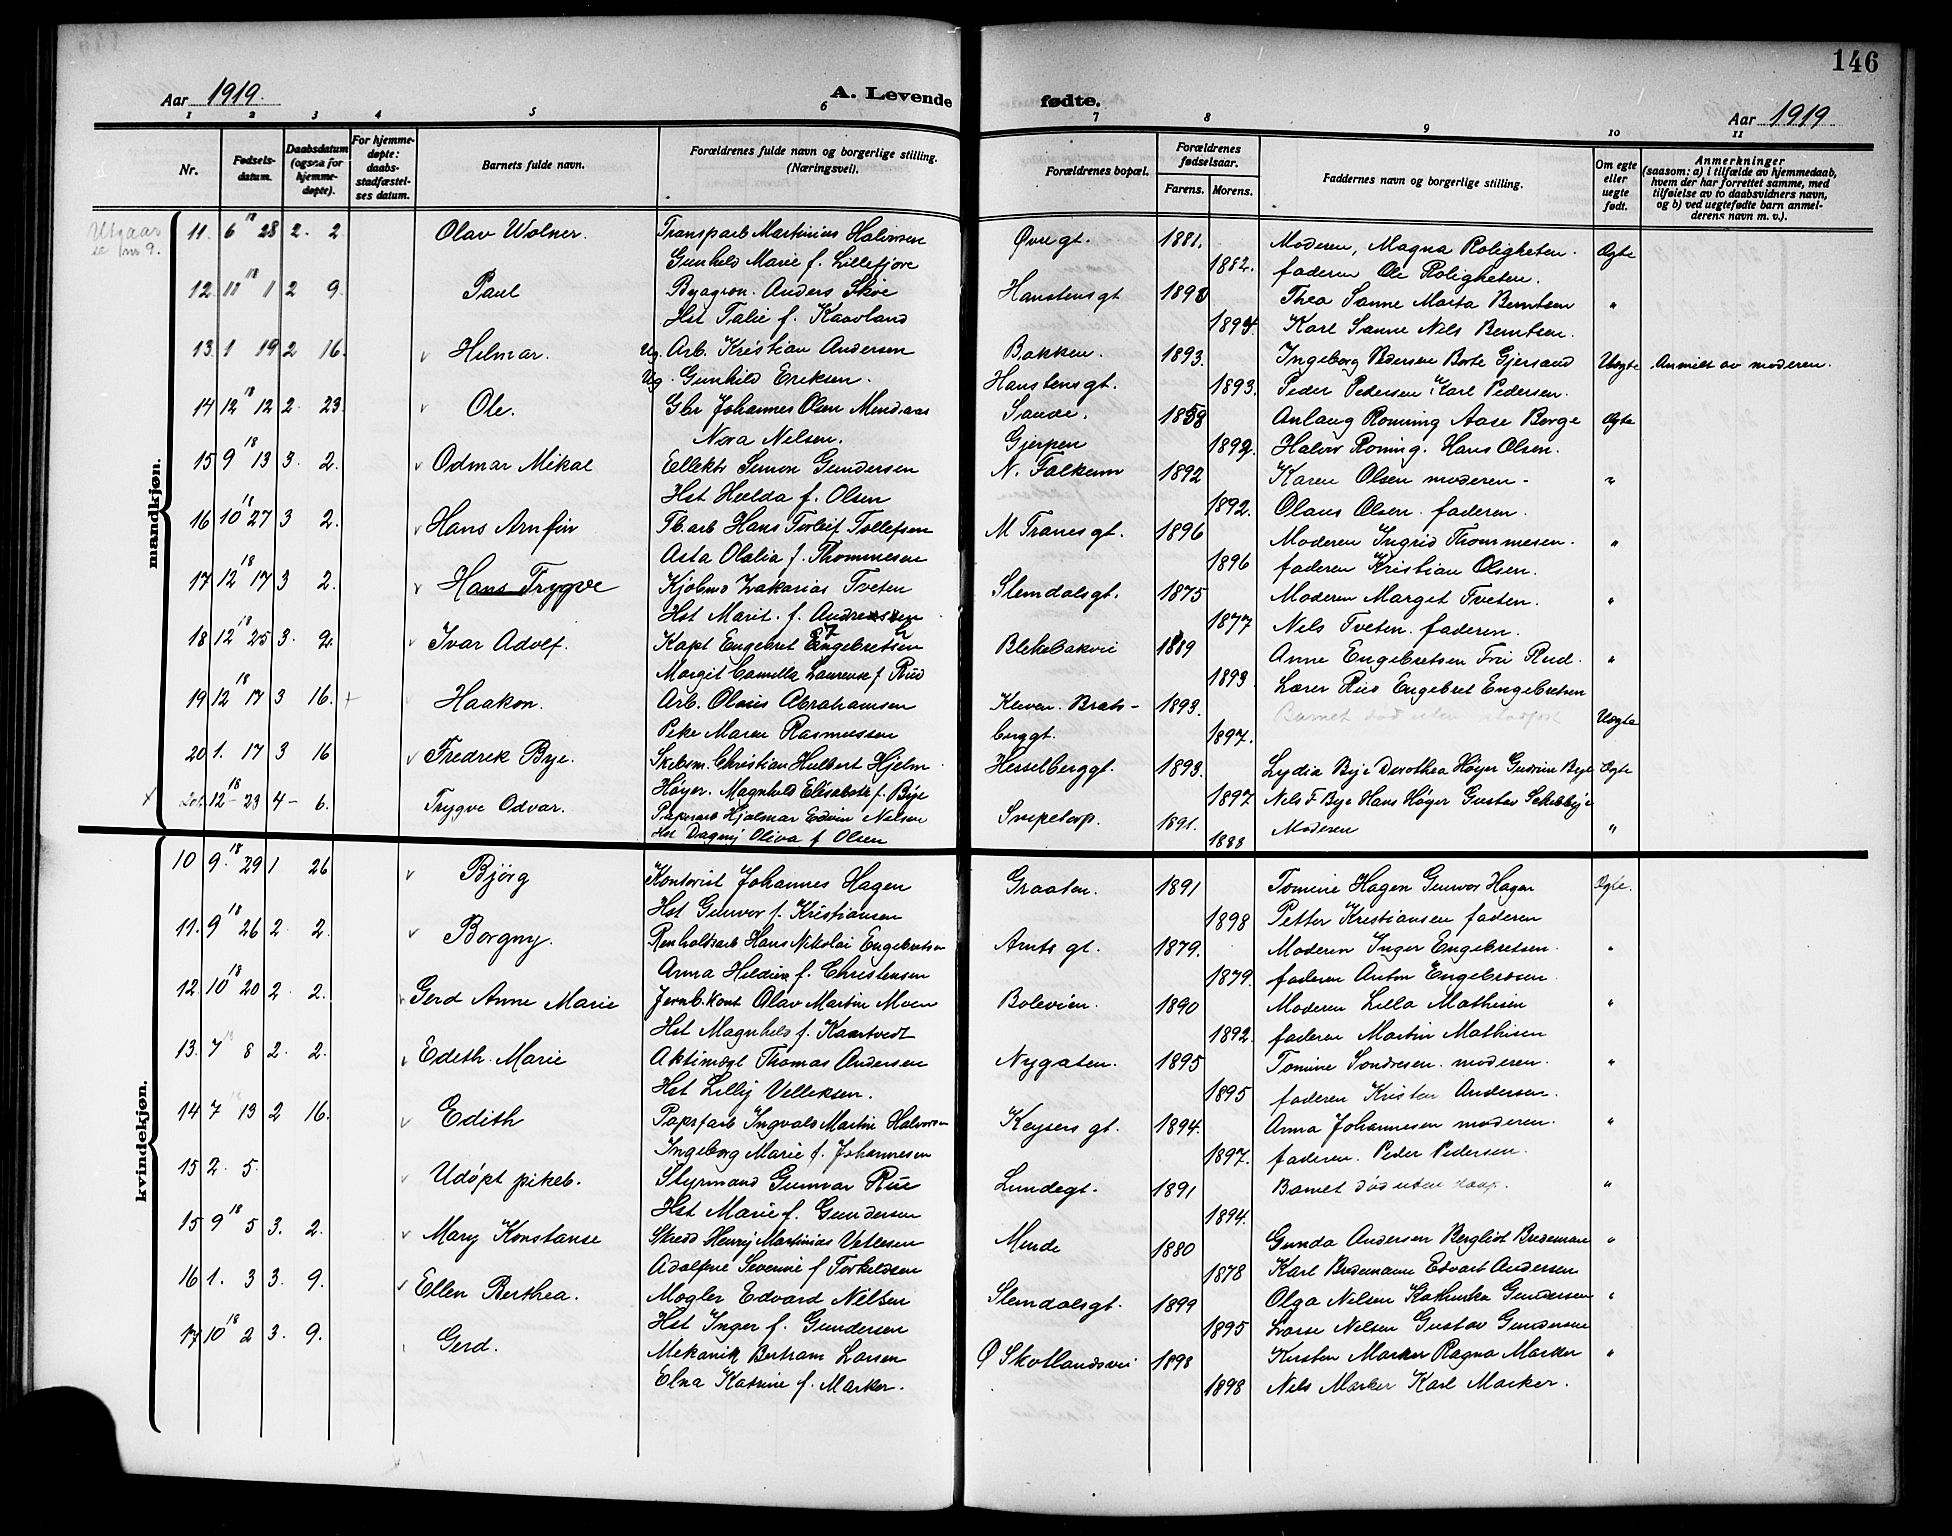 146
Aar 1919.
A. Levende fødte.
Aar 1919
1 2 3 4 5 6 7 8 9 10 11
Nr.
Fødsels-datum.
Daabsdatum (ogsaa for hjemme-døpte).
For hjemme-døpte: daabs-stadfæstel-ses datum.
Barnets fulde navn.
Forældrenes fulde navn og borgerlige stilling. (Næringsvei).
Forældrenes bopæl.
Forældrenes fødselsaar.
Farens. Morens.
Faddernes navn og borgerlige stilling.
Om egte eller uegte født.
Anmerkninger (saasom: a) i tilfælde av hjemmedaab, hvem der har forrettet samme, med tilføielse av to daabsvidners navn, og b) ved uegtefødte barn anmel-derens navn m. v.).
mandkjøn.
Utgaar nr 9.
11. 6 18 28 2. 2 Olav Wolner. Transparb Martinius Halvorsen Øvregt. 1881. Moderen, Magna Roligheten. Ægte
Gunhild Marie f. Lillefjore 1882. faderen Ole Roligheten.
12 11 18 1 2 9. Paul Anders Skoe Hanstensgt 1893 Thea Sanne Marta Berntsen "
Hst Talie f. Kaavland 1894 Karl Sanne Nils Berntsen.
13. 1 19 2 16. v Hilmar. Ug. Arb. Kristian Andersen Bakken. 1893. Ingeborg Pedersen Borte Gjersund Uegte Anmeldt av moderen.
Ug. Gunhild Eriksen. Hanstensgt. 1893. Peder Pedersen Karl Pedersen.
14 12 18 12 2. 23. v Ole. Gbr Johannes Olsen Mendaas Sande. 1858 Anlaug Roming Aase Berge Ægte
Nora Nelsen. Gjerpen 1892. Halvor Roning. Hans Olsen.
15 9 18 13 3. 2. v Odmar Mikal Simon Gundersen N. Falkum 1892 Karen Olsen moderen - "
Hst Hælda f. Olsen 1892. Olaus Olsen. faderen.
16 10 18 27 3 2. v Hans Arnfin Fb.arb Hans Torleif Tollefsen M Tranesgt. 1896 Moderen Ingrid Thommesen. "
Asta Olalia f. Thommesen 1896 faderen Kristian Olsen.
17 12 18 17 3 2. v Hans Trygve Kjøbmd Zakarias Tveten Slemdalsgt. 1875 Moderen Marget Tveten. "
Hst Marit. f. Andreassen 1877 Nels Tveten. faderen.
18 12 18 25 3. 2. Ivar Adolf. Kapt Engebret Engebretsen Blekebakvei 1889 Anne Engebretsen Fru Rud. "
Margit Camilla Laurenze f Rud 1893. Lærer Rud Engebret Engebretsen
19 12 18 17 3 16. + Haakon. Arb. Olaus Abrahamsen Kleven. Brats- 1893. Barnet død uten Uegte
Pike Maren Rasmussen berggt. 1897.
20 1. 17 3 16 v Fredrik Bye. Skibsm. Christian Hulbert Hjelm Hesselberggt. 1893. Lydia Bye Dorothea Høyer Gudrun Bye Ægte
Høyer. Magnhild Elisabeth f. Bye 1897 Nils F Bye Hans Høyer Gustav Schibbye
x 12 18 23 4 - 6. Trygve Odvar. Paparb Hjalmar Edvin Nelson Svipetorp. 1891. Moderen "
Hst Dagny Oliva f Olsen 1888
kvindekjøn.
10 9. 18 29 1 26 v Bjørg Kontorist Johannes Hagen Graaten. 1891 Tomine Hagen Gunvor Hagen Ægte.
Hst Gunvor f. Kristiansen 1898 Petter Kristiansen faderen
11. 9 18 26 2 2. v Borgny. Renholdsarb Hans Nikolai Engebretsen Amts gt. 1879. Moderen Inger Engebretsen. "
Anna Heldine f. Christensen 1879. faderen Anton Engebretsen.
12. 10 18 20 2. 2. v Gerd Anne Marie Jernb.kont Olav Martin Moen Boleveien. 1890 Moderen Lilla Mathisen "
Hst Magnhild f. Kaartvedt 1892. faderen Martin Mathisen
13. 7 18 8 2. 2. v Edith. Marie Thomas Andersen Nygaten. 1895 Tomine Sondresen. moderen. "
Hst Lilly Velleksen. 1895 faderen Kristen Andersen.
14 7 18 13 2 16. v Edith Papsfarb Ingvald Martin Halvorsen Keysers gt. 1894. Anna Johannesen moderen. "
Ingeborg Marie f. Johannesen 1897. faderen. Peder Pedersen.
15 2. 5. v Udøpt pikeb. Styrmand Gunnar Rue Lundegt. 1891 Barnet død uten daap. "
Hst Marie f. Gundersen 1894.
15 9 18 5 3. 2. v Mary Konstanse Skredd Henry Martinias Vetlesen Murde 1880 Gunda Andersen Bergliot Bredeman "
Adolfine Severine f Torkildsen 1878 Karl Bredemann Edvart Andersen
16 1. 3 3. 9. v Ellen Berthea. Mogler Edvard Nilsen Slemdalsgt. 1899 Olga Nelsen Kathinka Gundersen "
Hst Inger f. Gundersen 1895 Lorse Nelsen Gustav Gundersen
17 10 18 2 3. 9. Gerd. Mekanik Bertram Larsen Ø Skotlandsvei 1898 Kirsten Marker Ragna Marker "
Elna Katrine f. Marker. 1898 Nils Marker Karl Marker.